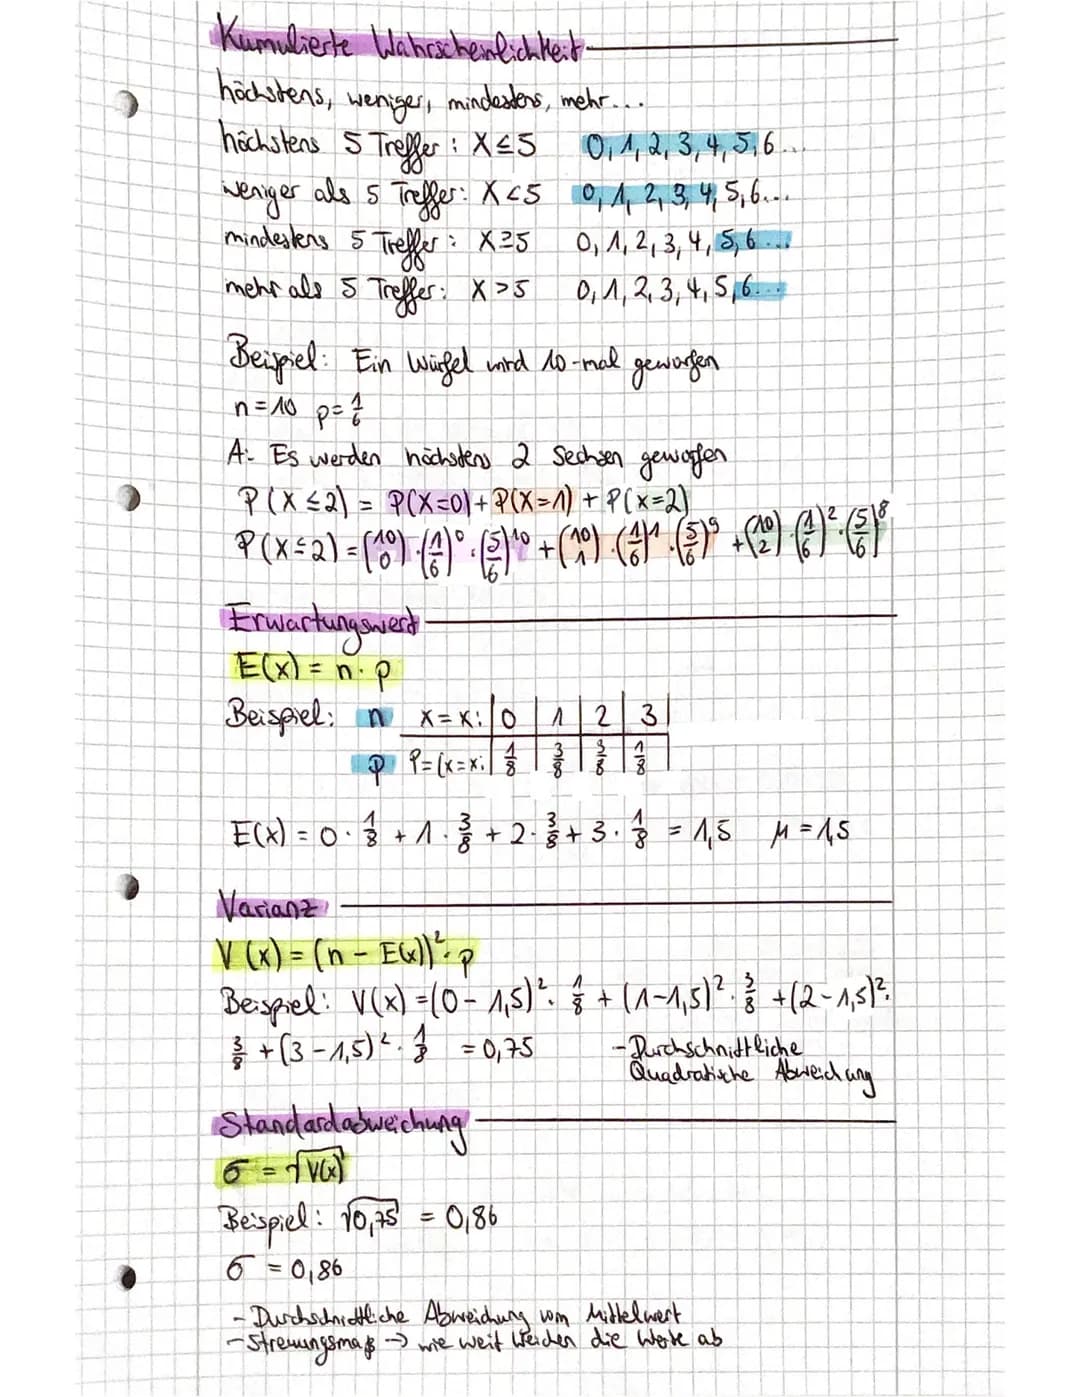 Kumulierte Wahrscheinlichkeit
höchstens, weniger, mindestens, mehr...
höchstens 5 Treffer : X≤5 0, 1, 2, 3, 4, 5, 6...
weniger als 5 Treffer: X<5 0, 1, 2, 3, 4, 5, 6....
mindestens 5 Treffer : X≥5 0, 1, 2, 3, 4, 5, 6 ...
mehr als 5 Treffer: X >5 0, 1, 2, 3, 4, 5, 6...
Beispiel: Ein Würfel wird 10-mal geworfen
n=10 p=1/6
A: Es werden höchstens 2 Sechsen geworfen
P(X≤2) = P(X=0)+P(X=1) + P(X=2)
P(X≤2) = (10 0) · (1/6)^0 · (5/6)^10 + (10 1) · (1/6)^1 · (5/6)^9 + (10 2) · (1/6)^2 · (5/6)^8
Erwartungswert
E(x) = n · p
Beispiel: n X=x: 0 1 2 3
p P=(x=x: 1/8 3/8 3/8 1/8
E(x) = 0 · 1/8 + 1 · 3/8 + 2 · 3/8 + 3 · 1/8 = 1,5 μ = 1,5
Varianz
V(x) = (n - E(x))² · p
Beispiel: V(x) =(0 - 1,5)² · 1/8 + (1-1,5)² · 3/8 + (2-1,5)² ·
3/8 + (3 - 1,5)² · 1/8 = 0,75 - Durchschnittliche
Quadratische Abweichung
Standardabweichung
σ = √V(x)
Beispiel: √0,75 = 0,86
σ = 0,86
- Durchschnittliche Abweichung vom Mittelwert
- Streuungsmaß → wie weit weichen die Werte ab